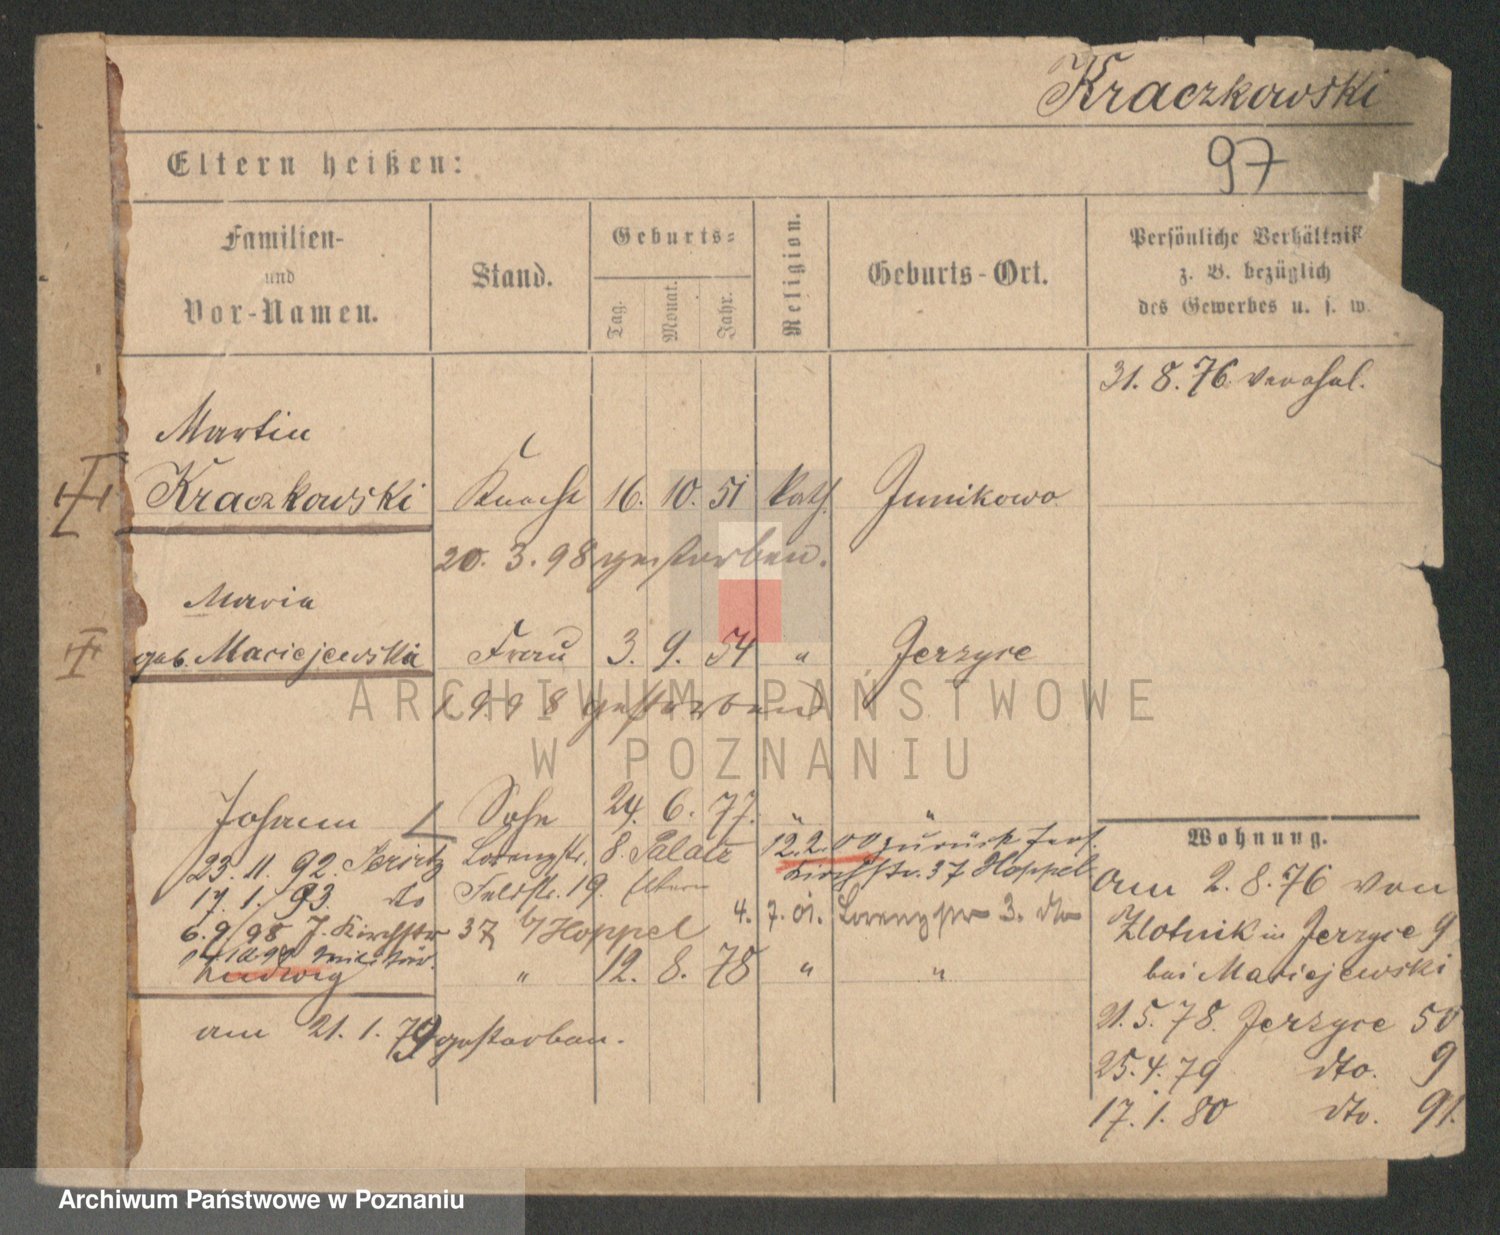 Kraczkowski
97
Eltern heißen:
Familien-
und
Vor-Namen.
Stand.
Geburts-
Tag.
Monat.
Jahr.
Religion.
Geburts-Ort.
Persönliche Verhältniß
z. B. bezüglich
des Gewerbes u. s. w.
31. 8. 76 verehel.
Martin
Kraczkowski Knecht 16. 10. 51 kath. Junikowo
20. 3. 98 gestorben.
Maria
geb. Maciejewska Frau 3. 9. 54 " Jerzyce
gestorben
Johann Sohn 24. 6. 77. " "
23. 11. 92. Lorenzstr. 8. 12. 2. 00 zurück Jers.
17. 1. 93. do Feldstr. 19. Eltern Kirchstr. 37 Hoppel
6. 9. 98 J. Kirchstr 37 b/ Hoppel 4. 7. 01. Lorenzstr 3. dto
Militär.
Ludwig " 12. 8. 78 " "
am 21. 1. 79 gestorben.
Wohnung.
Am 2. 8. 76 von
Zlotnik in Jerzyce 9
bei Maciejewski
21. 5. 78. Jerzyce 50
25. 4. 79 dto. 9
17. 1. 80 dto. 91.
ARCHIWUM PAŃSTWOWE
W POZNANIU
Archiwum Państwowe w Poznaniu